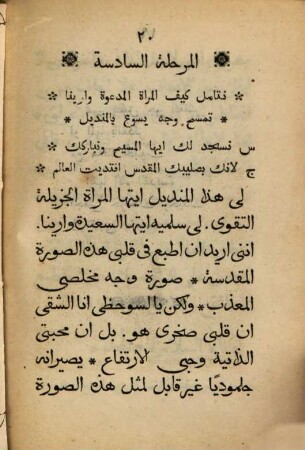 ٢٠
المرحلة السادسة
* فنتامل كيف المراة المدعوة واريفا *
* تمسح وجه يسوع بالمنديل *
س نسجد لك ايها المسيح ونباركك
ج لانك بصليبك المقدس افتديت العالم *
لى هذا المنديل ايتها المراة الجزيلة
التقوى. لى سلميه ايتها السعيدة وارينا.
اننى اريد ان اطبع فى قلبى هذه الصورة
المقدسة * صورة وجه مخلصى
المعذب * ولكن يا لسو حظى انا الشقى
ان قلبى صخرى هو. بل ان محبتى
الذاتية وحبى الارتفاع * يصيرانه
جلموديًا غير قابل لمثل هذه الصورة